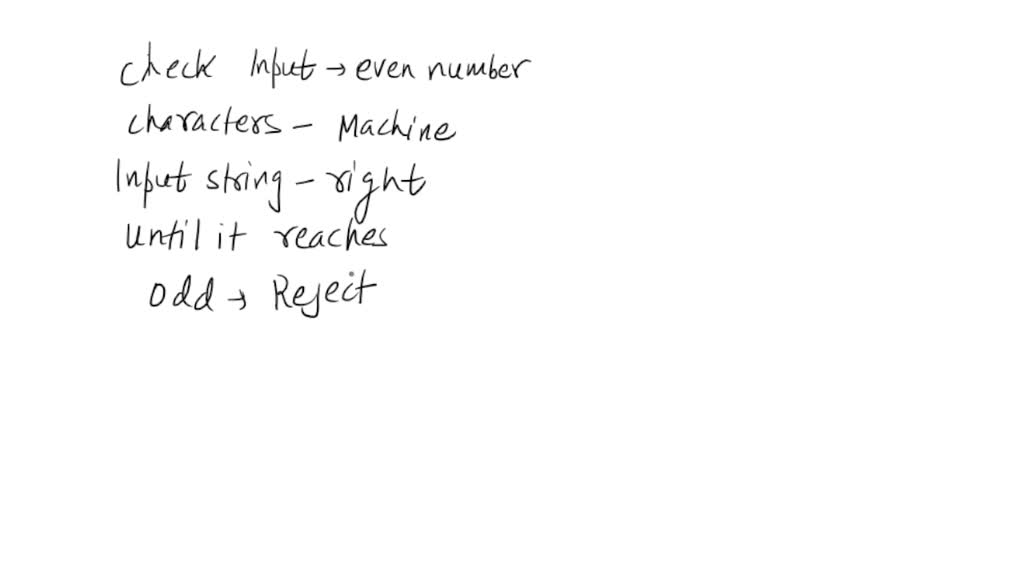 check Input → even number
characters - Machine
Input string - right
until it reaches
odd → Reject